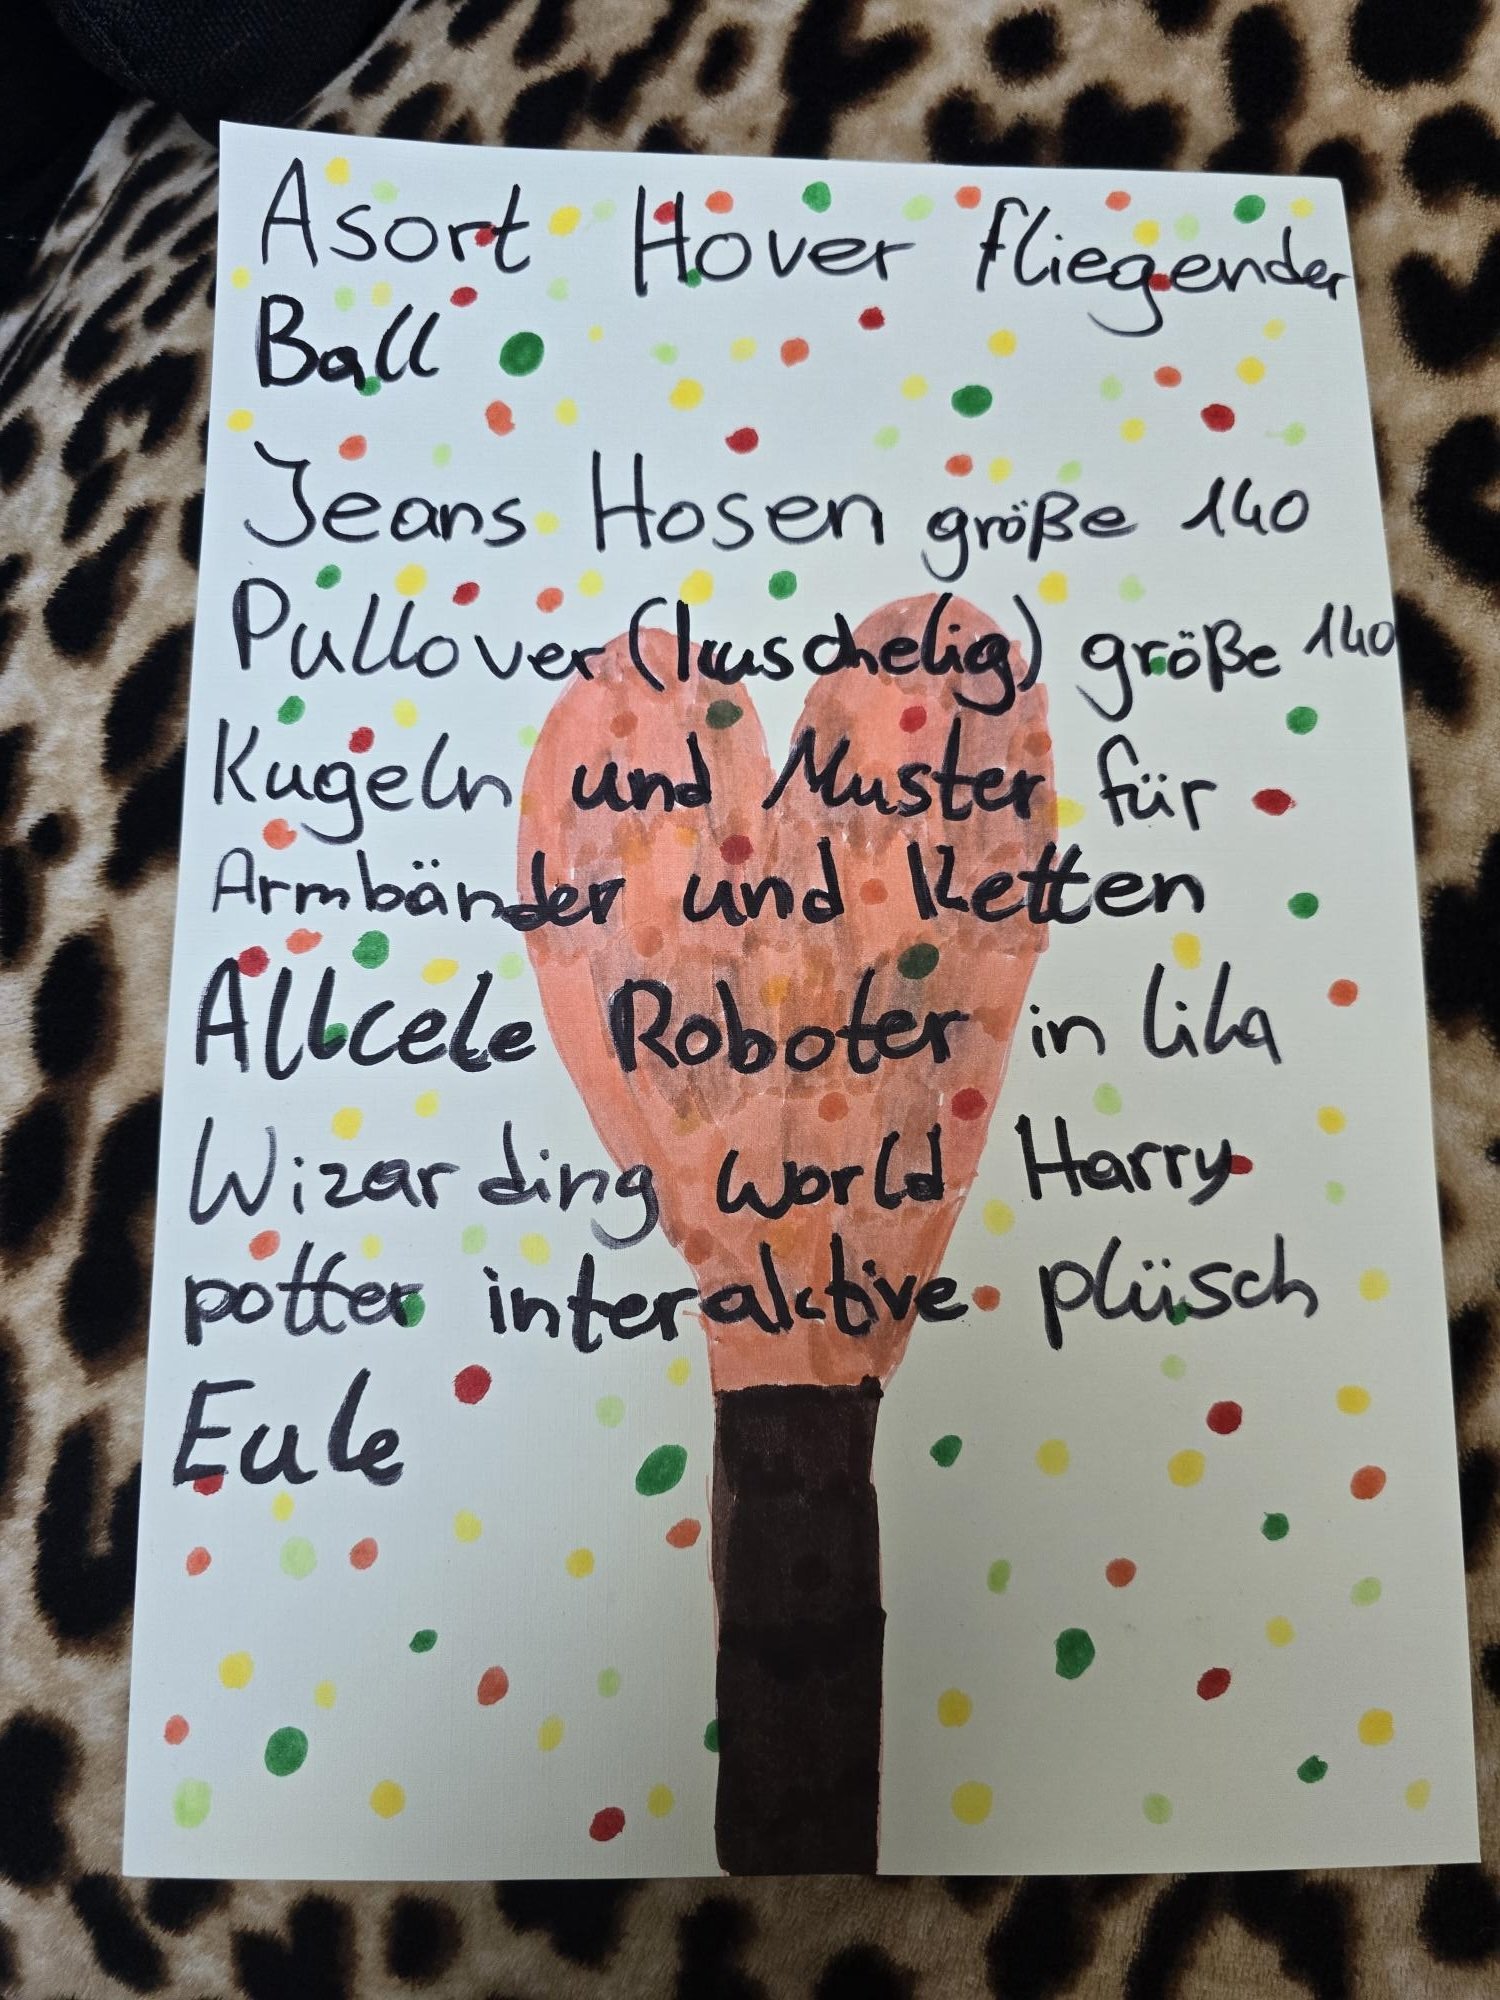 Asort Hover fliegender
Ball
Jeans Hosen größe 140
Pullover (kuschelig) größe 140
Kugeln und Muster für
Armbänder und Ketten
Allcele Roboter in lila
Wizarding world Harry
potter interaktive plüsch
Eule